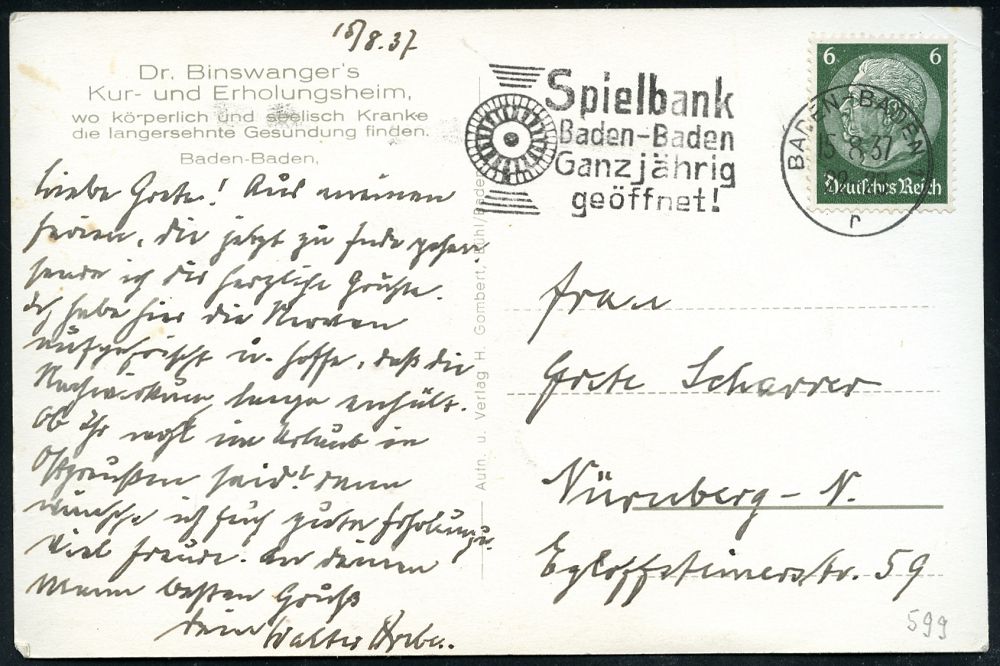 15/8.37
Dr. Binswanger's
Kur- und Erholungsheim,
wo körperlich und seelisch Kranke
die langersehnte Gesundung finden.
Baden-Baden,
Liebe Grete! Aus meinen
Ferien, die jetzt zu Ende gehen
sende ich dir herzliche Grüße.
Ich habe hier die Nerven
aufgefrischt u. hoffe, daß die
Nachwirkung lange anhält.
Ob Ihr wohl im Urlaub in
Ostpreußen seid? Dann
wünsche ich Euch gute Erholung u.
viel Freude. An deinen
Mann besten Gruß
Dein Walter
Autn. u. Verlag H. Gombert, Bühl/Baden
Spielbank
Baden-Baden
Ganzjährig
geöffnet!
6 6
Deutsches Reich
BADEN-BADEN
15.8.37
r
Frau
Grete Scharrer
Nürnberg-N.
Egloffsteinerstr. 59
599